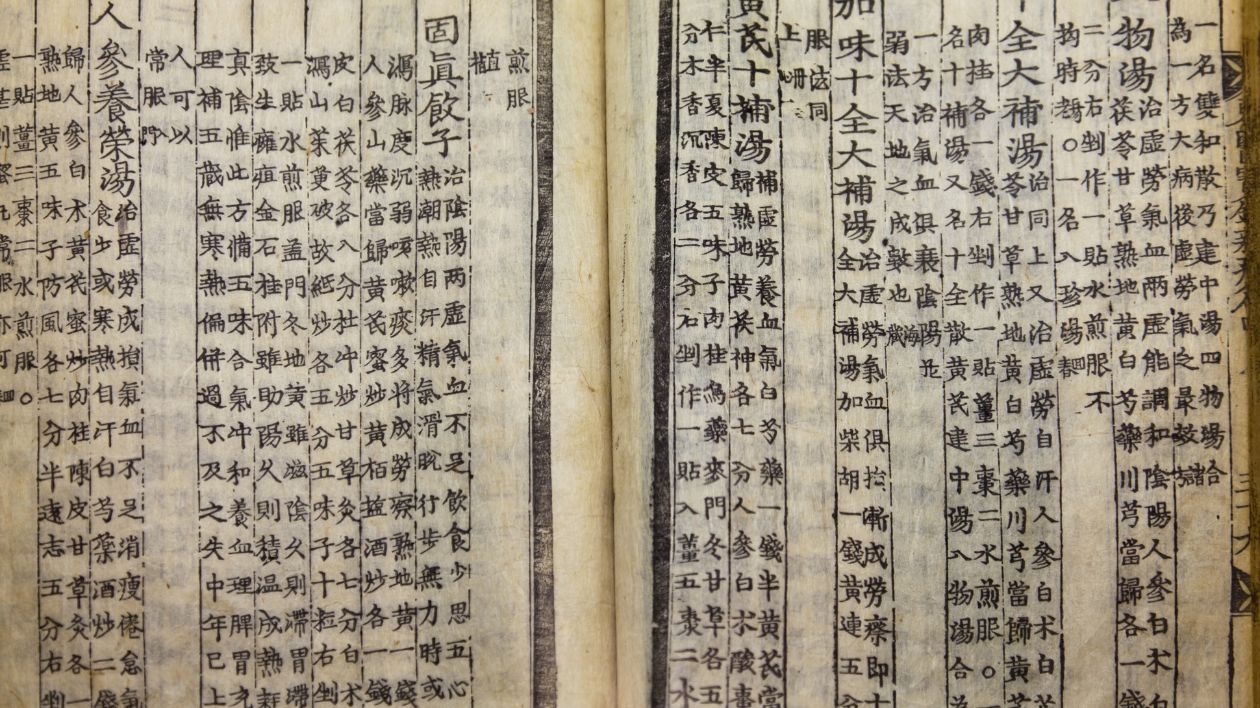 一名雙和散乃建中湯四物湯合
為一方大病後虛勞氣乏最效 諸方
物湯 治虛勞氣血兩虛能調和陰陽人參白朮白
茯苓甘草熟地黃白芍藥川芎當歸各一錢
二分右剉作一貼水煎服不
拘時〇一名八珍湯 回春
十全大補湯 治同上又治虛勞自汗人參白朮白茯
苓甘草熟地黃白芍藥川芎當歸黃芪
肉桂各一錢右剉作一貼薑三棗二水煎服〇一
名十補湯又名十全散黃芪建中湯八物湯合為
一方治氣血俱衰陰陽並
弱法天地之成數也 海藏
加味十全大補湯 治虛勞氣血俱損漸成勞瘵即十
全大補湯加柴胡一錢黃連五分
服法同
上
黃芪十補湯 補虛勞養血氣白芍藥一錢半黃芪當
歸熟地黃茯神各七分人參白朮酸棗
仁半夏陳皮五味子肉桂烏藥麥門冬甘草各五
分木香沉香各二分右剉作一貼入薑五棗二水
煎服
直指
固眞飮子 治陰陽兩虛氣血不足飮食少思五心
熱潮熱自汗精氣滑脫行步無力時或
瀉脉度沉弱咳嗽痰多將成勞瘵熟地黃一錢
人參山藥當歸黃芪蜜炒黃栢鹽酒炒各一錢
皮白茯苓各八分杜冲炒甘草灸各七分白朮
瀉山茱萸破故紙炒各五分五味子十粒右剉
一貼水煎服盖門冬地黃雖滋陰久則滯胃滯
致生癰疽金石桂附雖助陽久則積温成熱耗
眞陰惟此方備五味合氣冲和養血理脾胃充
理補五藏無寒熱偏倂過不及之失中年已上
人可以
常服 門
人參養榮湯 治虛勞成損氣血不足消瘦倦怠氣
食少或寒熱自汗白芍藥酒炒二錢
歸人參白朮黃芪蜜炒肉桂陳皮甘草灸各一
熟地黃五味子防風各七分半遠志五分右剉
一貼薑三棗二水煎服〇
虛甚則蜜丸常服亦可 回